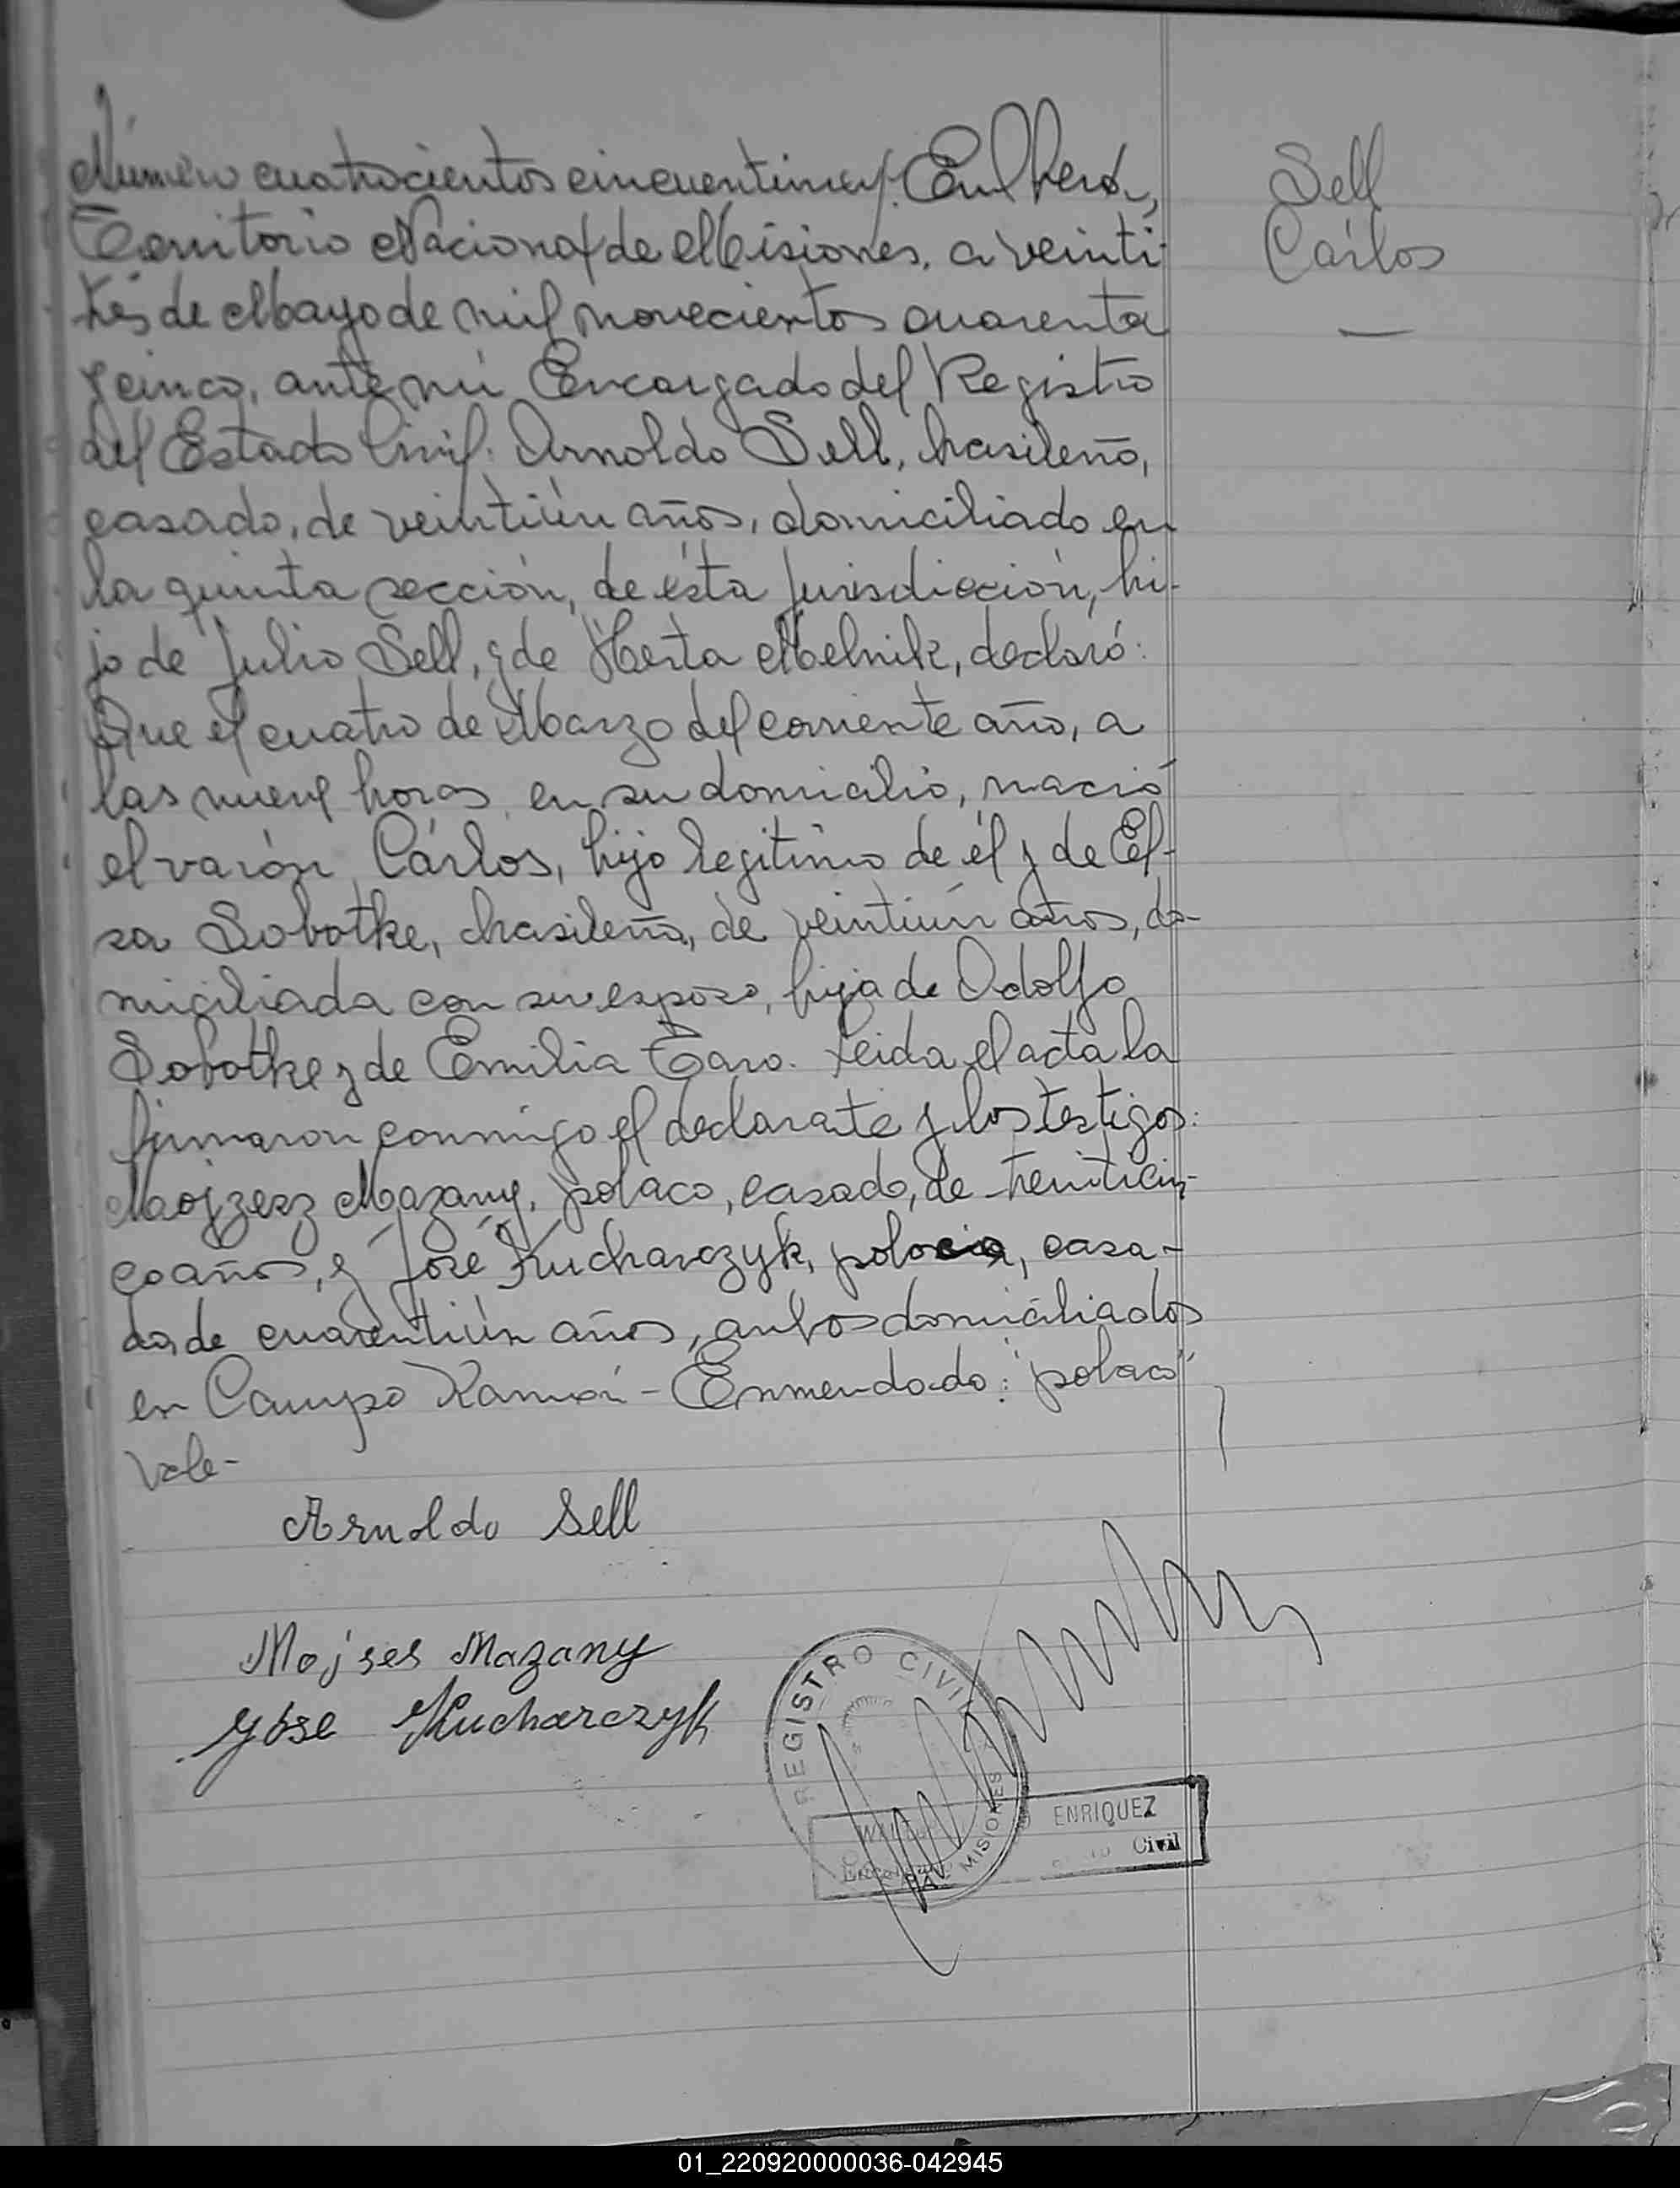 Número cuatrocientos cincuentinueve. En Oberá,
Sell
Territorio Nacional de Misiones, a veinti-
Cárlos
trés de Mayo de mil novecientos cuarenta
y cinco, ante mi Encargado del Registro
del Estado Civil: Arnoldo Sell, brasileño,
casado, de veintiún años, domiciliado en
la quinta sección, de ésta jurisdicción, hi-
jo de Julio Sell, y de Herta Melnik, declaró:
Que el cuatro de Marzo del corriente año, a
las nueve horas, en su domicilio, nació
el varón Cárlos, hijo legitimo de él y de El-
sa Sobotke, brasileña, de veintiún años, do-
miciliada con su esposo, hija de Odolfo
Sobotke y de Emilia Taro. Leida el acta la
firmaron conmigo el declarate y los testigos:
Maojzesz Mazany, polaco, casado, de treinticin-
co años, y José Kucharczyk, polaco, casa-
do, de cuarentiún años, anbos domiciliados
en Campo Ramón - Enmendado: "polaco"
Vale-
Arnoldo Sell
Mojses Mazany
José Kucharczyk
REGISTRO CIVIL
MISIONES
ENRIQUEZ
Civil
01_220920000036-042945